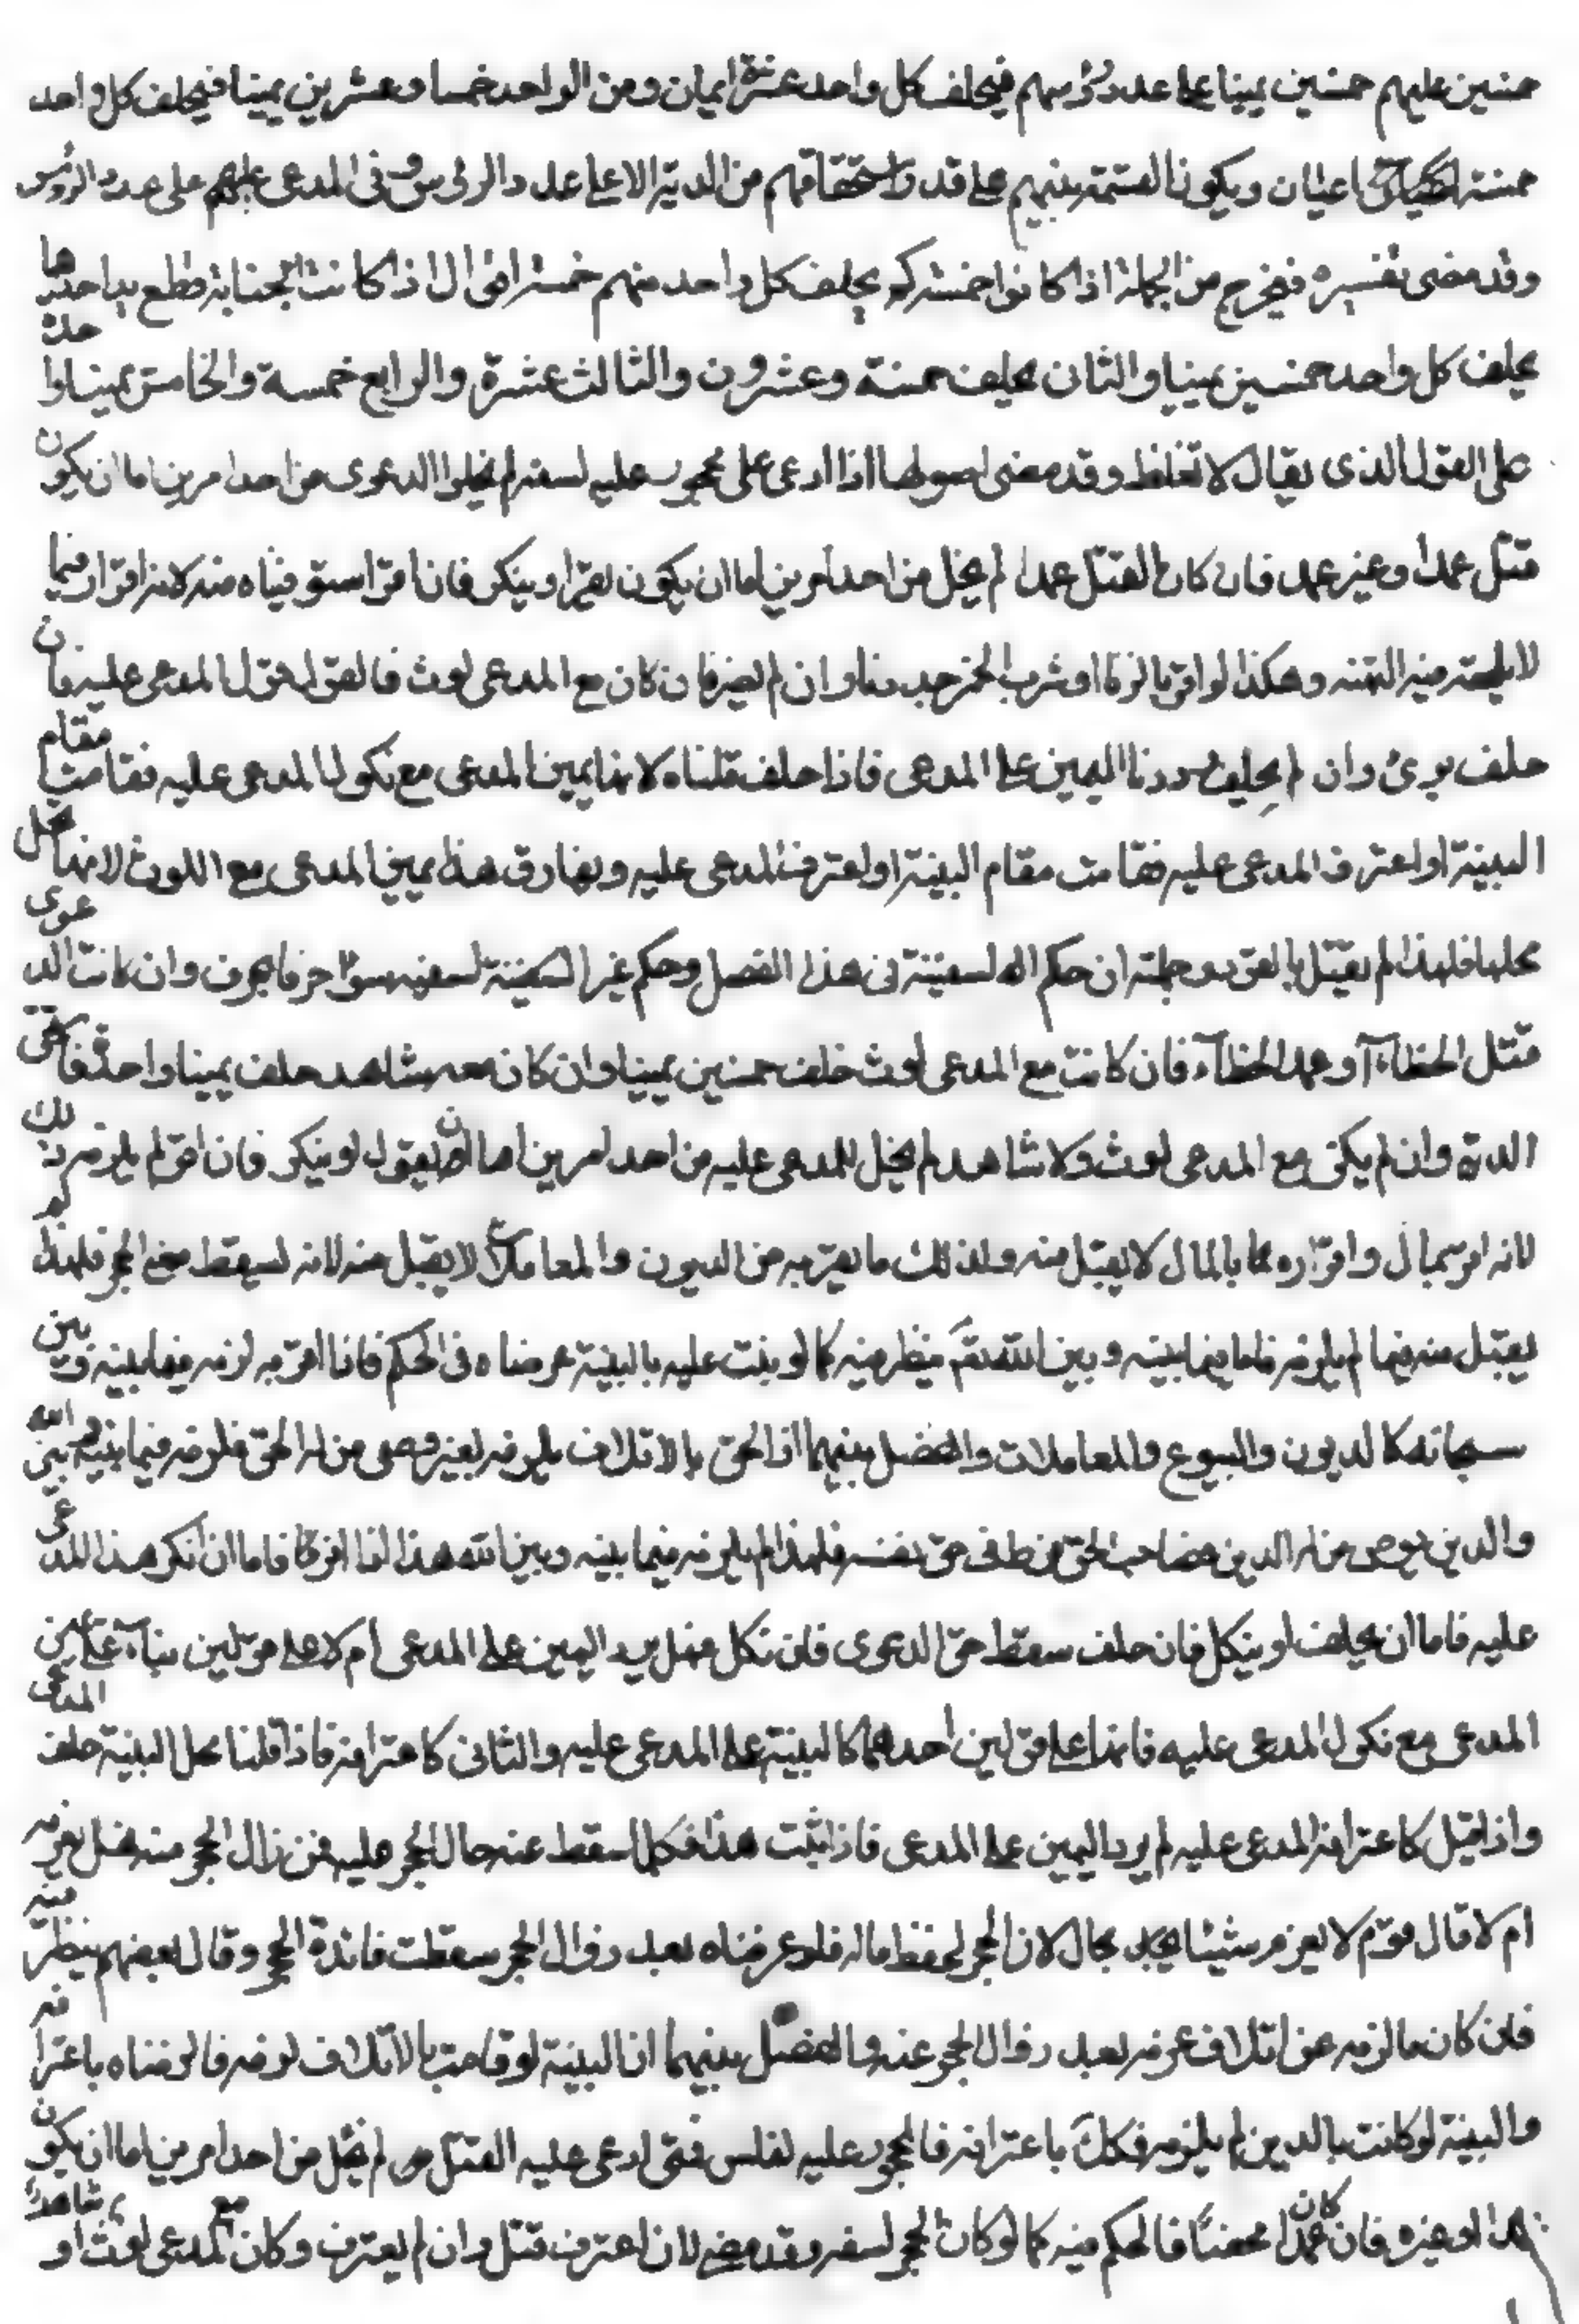 خمسين عليهم خمسين يمينا على عدد رؤسهم فيحلف كل واحد عشرة ايمان ومن الواحد خمسا وعشرين يمينا فيحلف كل واحد
خمسة ايمان ويكون القسمة بينهم على قدر استحقاقهم من الدية الا على عدد الرؤس وفى المدعى عليهم على عدد الرؤس
وقد مضى تفسيره فيخرج من الجملة اذا كانوا خمسة يحلف كل واحد منهم خمسة اقوال اذا كانت الجناية قطع يد احدها
يحلف كل واحد خمسين يمينا والثان يحلف خمسة وعشرون والثالث عشرة والرابع خمسة والخامس يمينا واحدة
على القول الذى يقال لا تغلظ وقد مضى اصولها اذا ادعى على محجور عليه لسفه لم يخلوا الدعوى من احد امرين اما ان يكون
قتل عمدا وغير عمد فان كان القتل عمدا لم يخل من احد امرين اما ان يكون يقر او ينكر فان اقر استوفيناه منه لانه اقرار فيما
لا يلحقه فيه التهمة وهكذا لو اقر بالزنا او شرب الخمر وان لم يقر فان كان مع المدعى لوث فالقول قول المدعى عليه فان
حلف برئ وان لم يحلف رددنا اليمين على المدعى فاذا حلف قتلناه لانها يمين المدعى مع نكول المدعى عليه فقامت مقام
البينة او اعترف المدعى عليه فقامت مقام البينة او اعترف المدعى عليه ويفارق هذا يمين المدعى مع اللوث لانها كل
محلها فلهذا لم يقتل بالقود جملته ان حكم السفينة فى هذا الفصل وحكم غير السفينة لسفيه سوا حرفا بحرف وان كانت الدعوى
قتل الخطاء او عمد الخطاء فان كانت مع المدعى لوث حلف خمسين يمينا وان كان معه شاهد حلف يمينا واحدة فاستحق
الدية وان لم يكن مع المدعى لوث ولا شاهد لم يخل المدعى عليه من احد امرين اما ان يقول او ينكر فان اقر لم يلزمه ذلك
لانه اقر بمال واقراره بالمال لا يقبل منه وكذلك ما يقر به من الديون والمعاملات لا يقبل منه لانه لسقط معنى الحجر فلهذا لم
يقبل منه فيما لم يلزمه فاما فيما بينه وبين الله تعم ينظر فيه كما لو ثبت عليه بالبينة عرضناه فى الحكم فاذا اقر به لزمه فيما بينه وبين
الله سبحانه كالديون والبيوع والمعاملات والفصل بينهما اذ الحق بالاتلاف يلزمه بغير رضى من له الحق فلزمه فيما بينه وبين
والدين برضى من له الدين فصاحب الحق من طلف حق نفسه فلهذا لم يلزمه فيما بينه وبين الله هذا اذا اقر فاما ان انكر هذا المدعى
عليه فاما ان يحلف او ينكل فان حلف سقط حق الدعوى فان نكل فهل يرد اليمين على المدعى ام لا على قولين بناء على يمين
المدعى مع نكول المدعى عليه فانها على قولين احدهما كالبينة على المدعى عليه والثانى كاعترافه فاذا قلنا محل البينة حلف المدعى
واذا قيل كاعترافه المدعى عليه لم يرد اليمين على المدعى فاذا ثبت هذا فكلما سقط عنه حال الحجر عليه فمن زال الحجر منه فهل يغرمه
ام لا قال قوم لا يغرم شيئا بحال لان الحجر لحفظ ماله فلو غرمناه بعد زوال الحجر سقطت فائدة الحجر وقال بعضهم ينظر فيه
فان كان ما لزمه عن اتلاف غرمه بعد زوال الحجر عنه والفصل بينهما ان البينة لو قامت بالاتلاف لزمه فالزمناه باعترافه
والبينة لو كانت بالدين لم يلزمه فكك باعترافه فالمحجور عليه لفلس فمتى ادعى عليه القتل لم يخل من احد امرين اما ان يكون
عمدا او غيره فان كان عمدا محضا فالحكم فيه كما لو كان الحجر لسفه وقد مضى لان اعترف قتل وان لم يعترف وكان مع المدعى لوث او شاهد